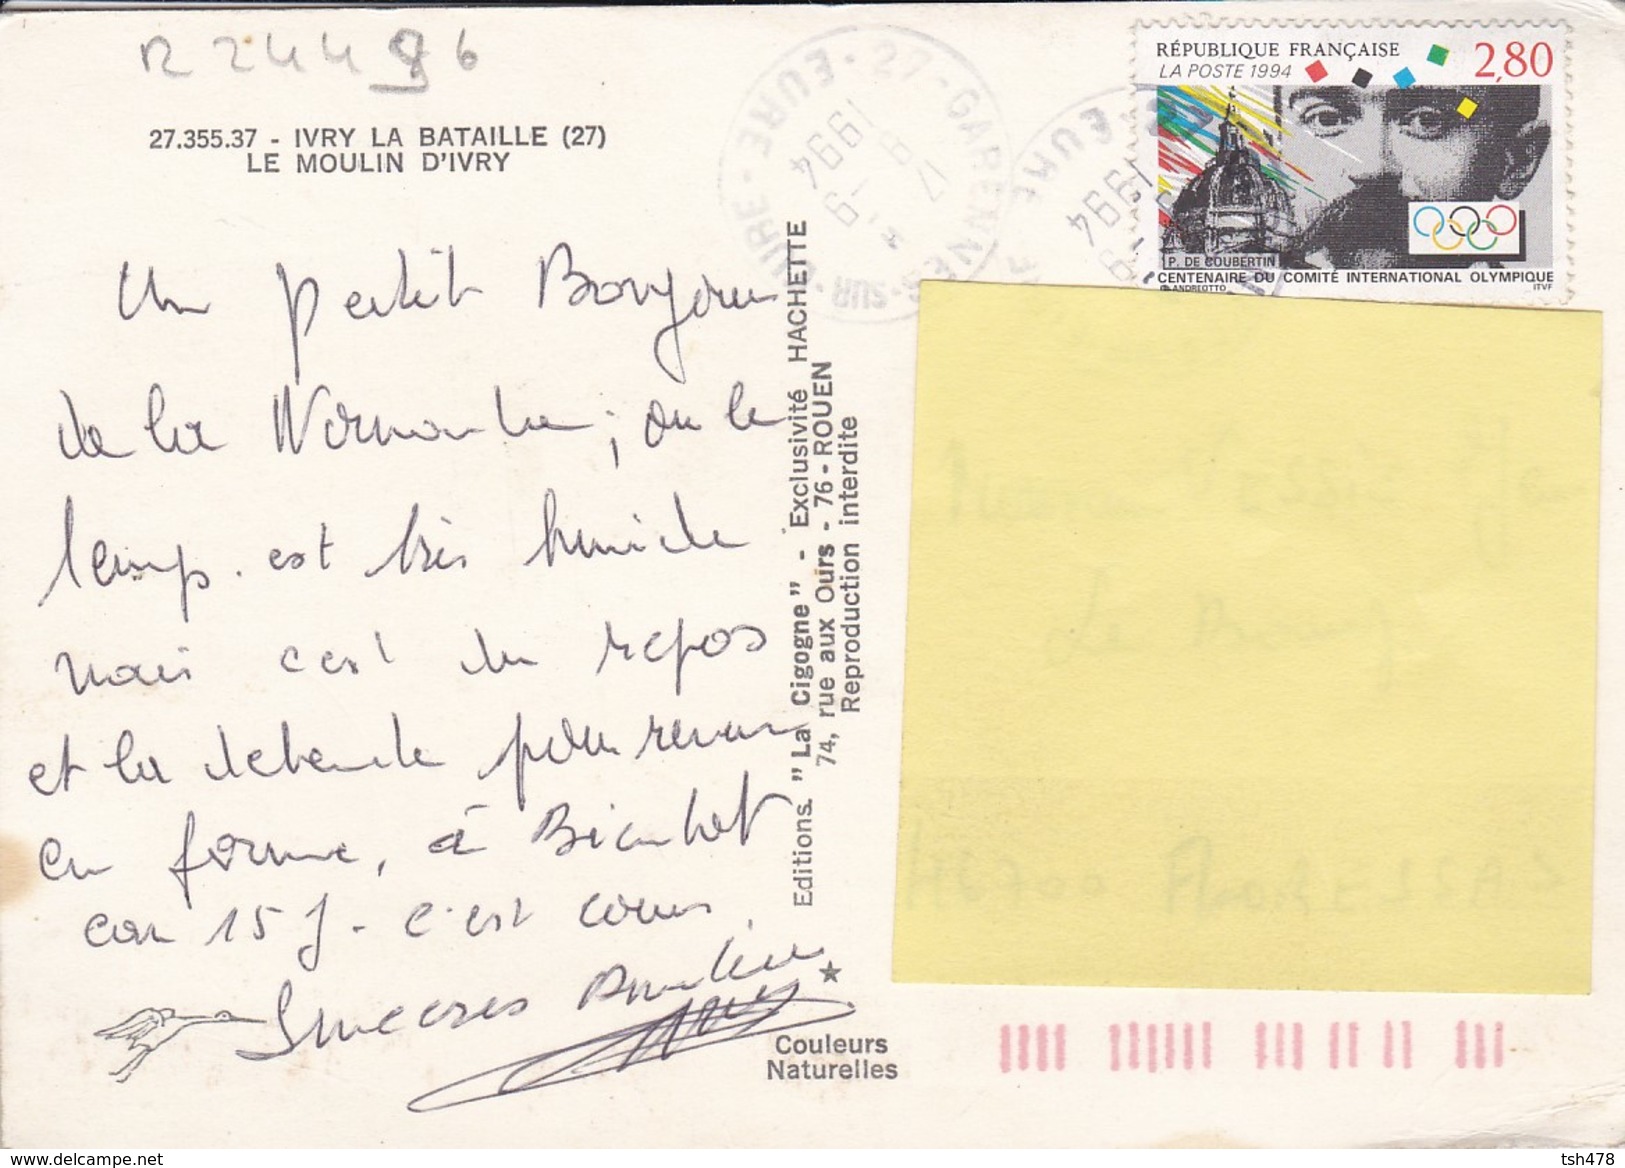 R 24496
27.355.37 - IVRY LA BATAILLE (27)
LE MOULIN D'IVRY
Un petit Bonjour
de la Normandie, ou le
temps. est très humide
mais c'est du repos
et la detente pour revenir
en forme, à Bientot
car 15 J. c'est cours.
Sinceres Amities
Editions "La Cigogne" - Exclusivité HACHETTE
74, rue aux Ours - 76 - ROUEN
Reproduction interdite
Couleurs
Naturelles
27 - GARENNES-SUR-EURE - EURE
17 8
1994
EURE
1994
RÉPUBLIQUE FRANÇAISE 2,80
LA POSTE 1994
P. DE COUBERTIN
CENTENAIRE DU COMITÉ INTERNATIONAL OLYMPIQUE
ANDREOTTO ITVF
Le Bourg
46700 FLORESSAS
www.delcampe.net
tsh478